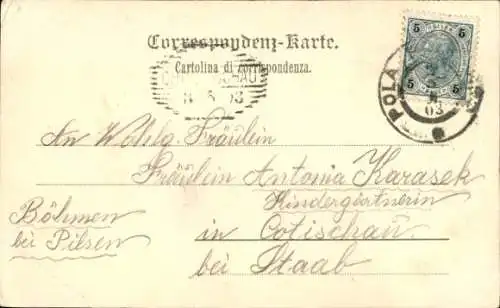 Correspondenz-Karte.
Cartolina di corrispondenza.
5 5
5 5
POLA
03
An Wohlg. Fräulein
Fräulein Antonia Karasek
Kindergärtnerin
in Cotischau
bei Staab
Böhmen
bei Pilsen